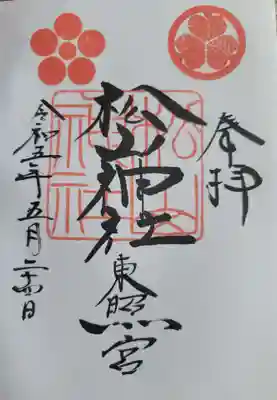 奉拝
松山神社
東照宮
令和五年五月二十四日